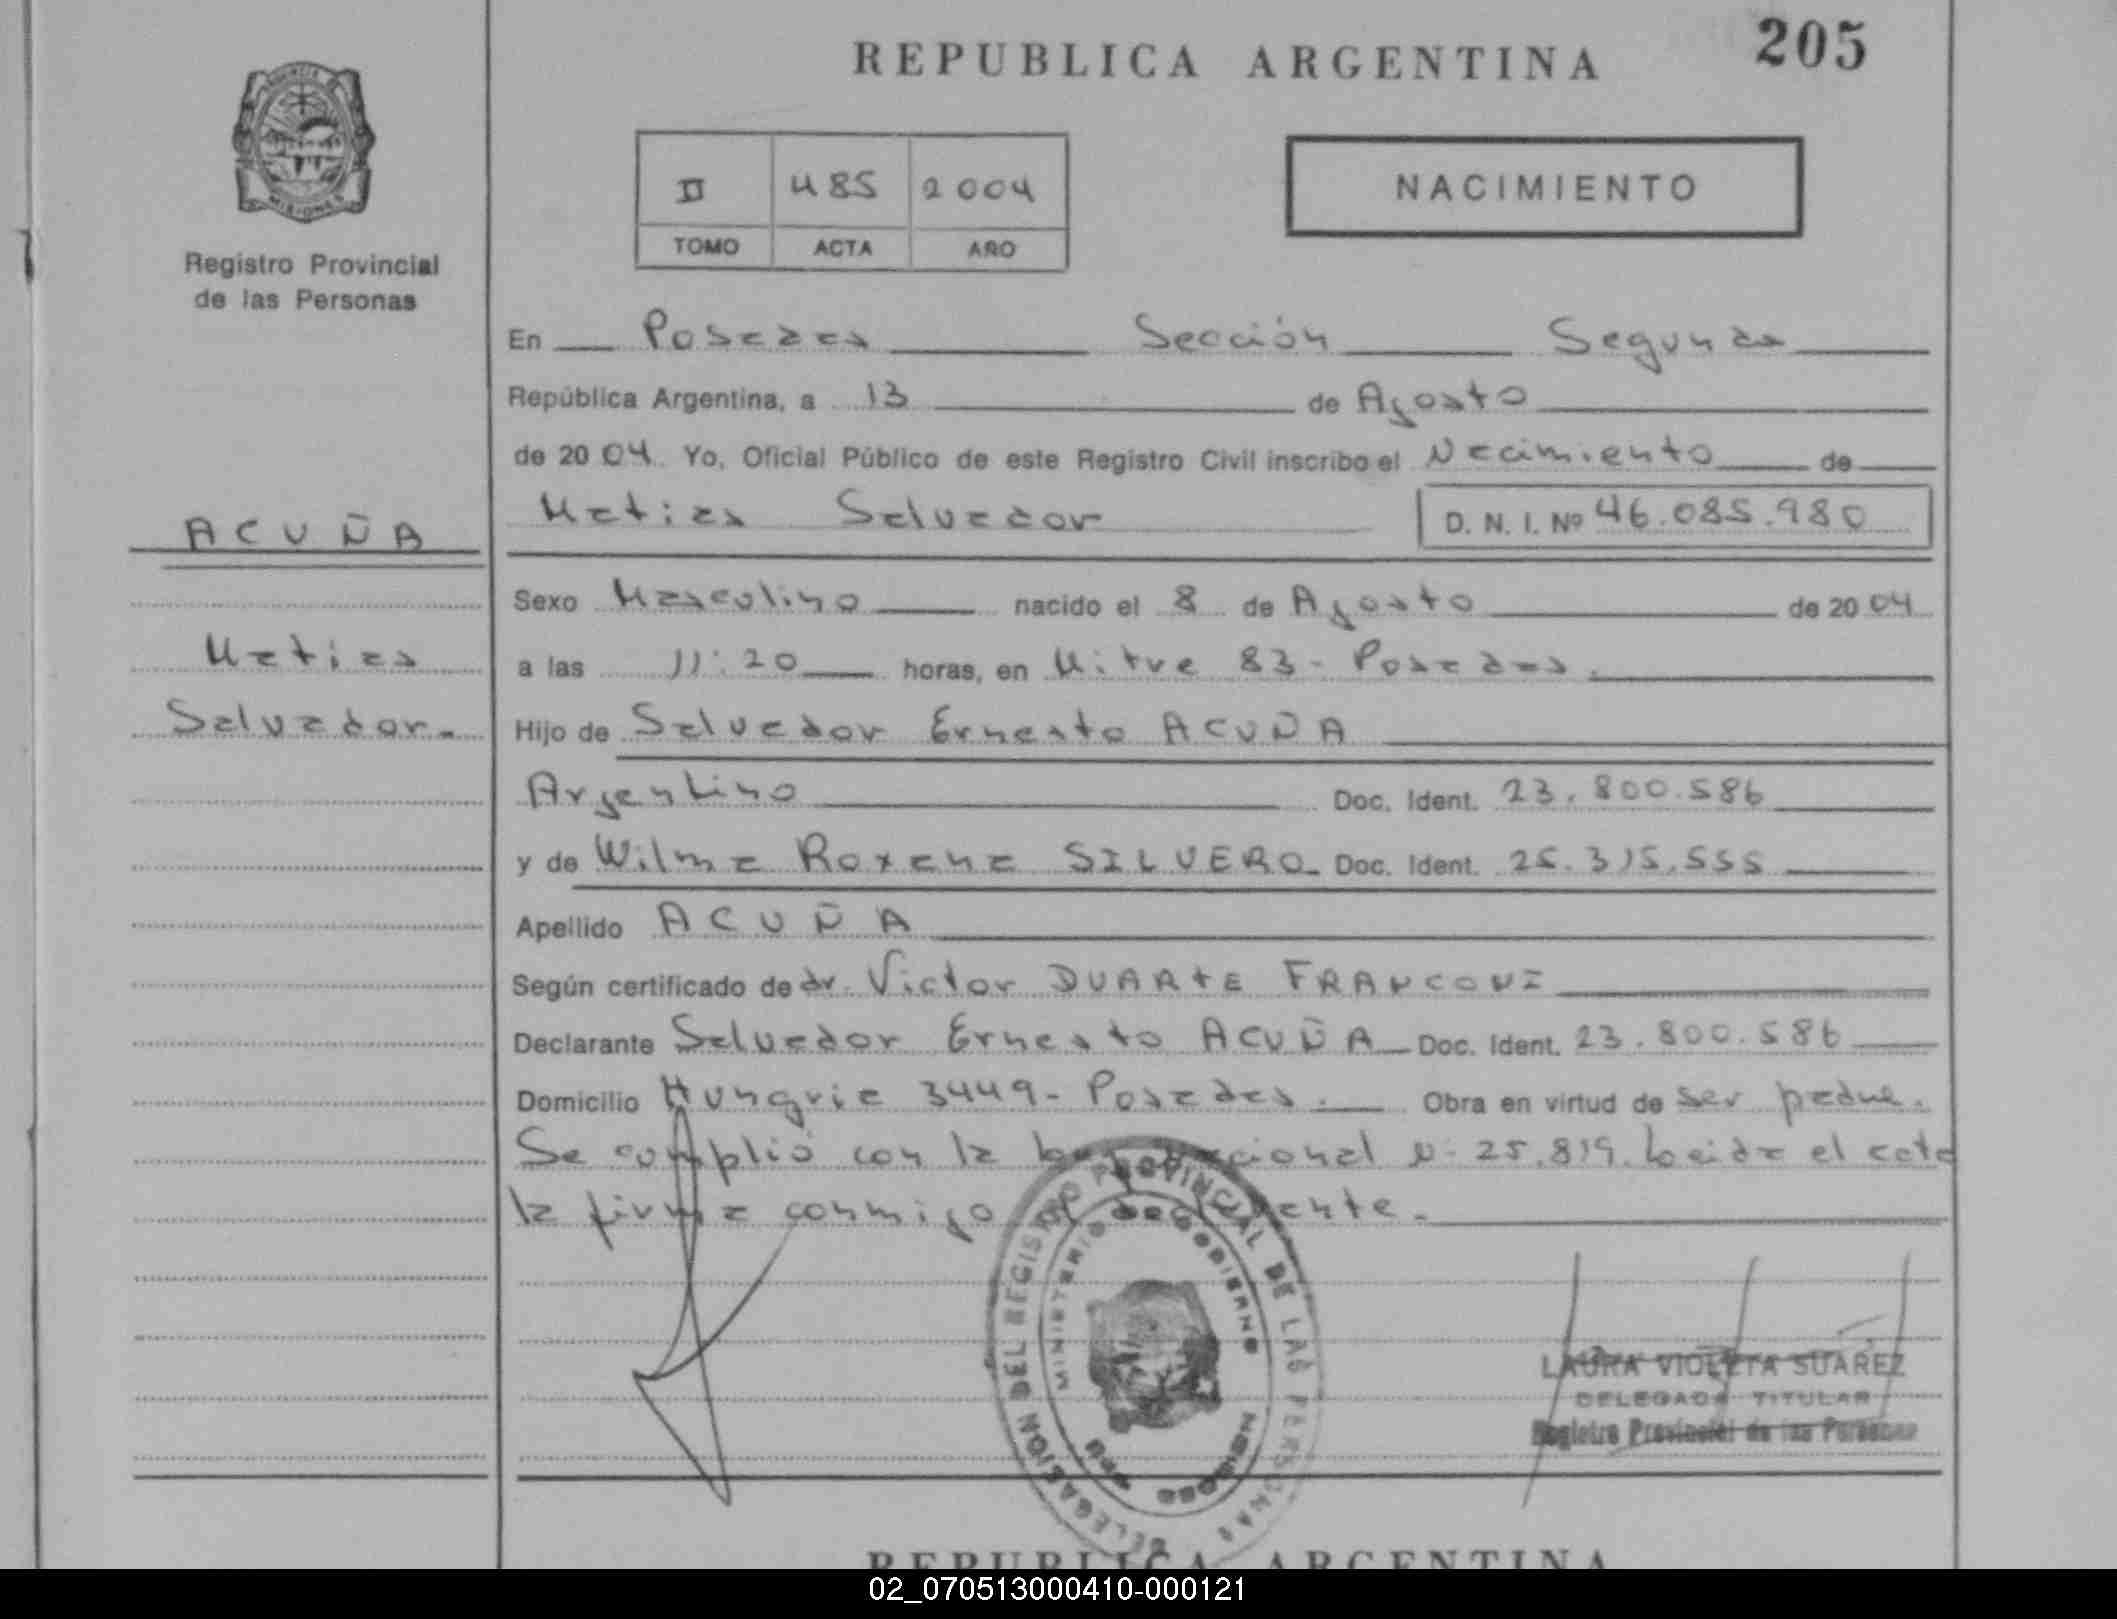 REPUBLICA ARGENTINA 205
PROVINCIA DE MISIONES
Registro Provincial
de las Personas
II 485 2004
TOMO ACTA AÑO
NACIMIENTO
En Posadas Sección Segunda
República Argentina, a 13 de Agosto
de 2004 Yo, Oficial Público de este Registro Civil inscribo el Nacimiento de
Matias Salvador D. N. I. Nº 46.085.980
ACUÑA
Matias
Salvador.-
Sexo Masculino nacido el 8 de Agosto de 2004
a las 11:20 horas, en Mitre 83 - Posadas.
Hijo de Salvador Ernesto ACUÑA
Argentino Doc. Ident. 23.800.586
y de Wilma Roxana SILVERO Doc. Ident. 25.315.555
Apellido ACUÑA
Según certificado de dr. Victor DUARTE FRANCONI
Declarante Salvador Ernesto ACUÑA Doc. Ident. 23.800.586
Domicilio Hungria 3449 - Posadas. Obra en virtud de ser padre.
Se cumplió con la ley nacional N: 25.819. Leida el acta
la firma conmigo el declarante.
DELEGASION DEL REGISTRO PROVINCIAL DE LAS PERSONAS
MINISTERIO DE GOBIERNO
MISIONES
LAURA VIOLETA SUAREZ
DELEGADA TITULAR
Registro Provincial de las Personas
REPUBLICA ARGENTINA
02_070513000410-000121